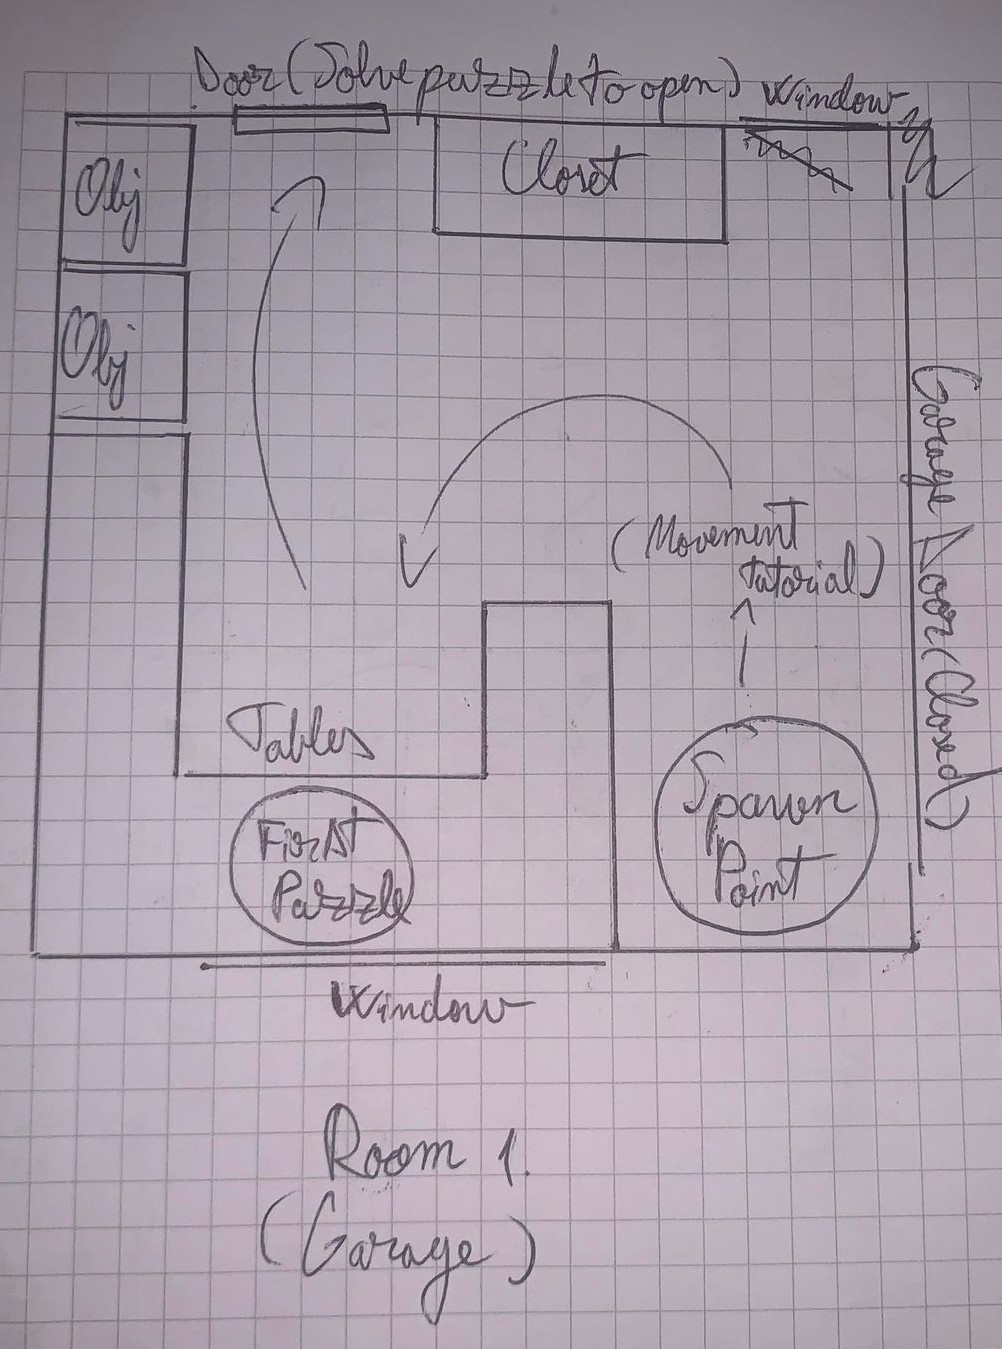 Door (Solve puzzle to open)
Window
Obj
Closet
Obj
Garage Door (Closed)
(Movement
tutorial)
Tables
First
Puzzle
Spawn
Point
Window
Room 1.
(Garage)